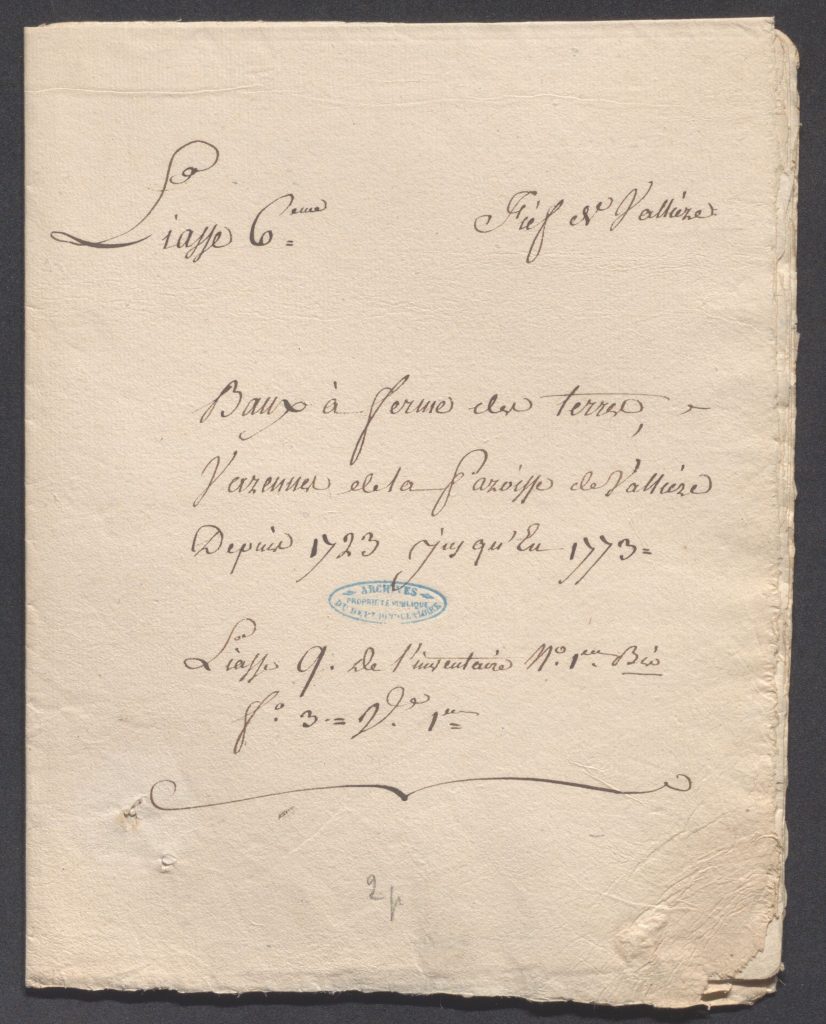 Liasse 6.eme
Fief de Vallière
Baux à ferme des terres,
Varennes de la Paroisse de Vallière
Depuis 1723 jusqu'En 1773=
ARCHIVES
PROPRIÉTÉ PUBLIQUE
Liasse 9. De l'inventaire No. 1er Bis
fo. 3.= Vo. 1er=
2p